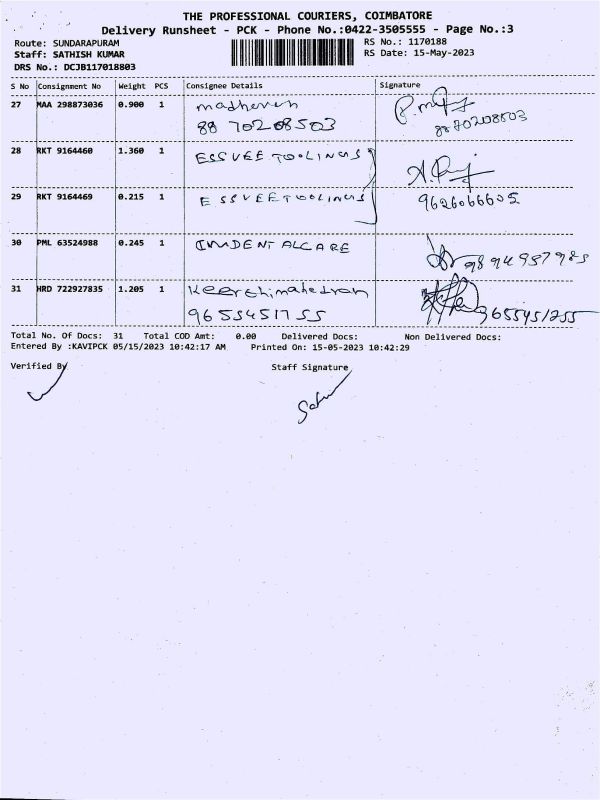 THE PROFESSIONAL COURIERS, COIMBATORE
Delivery Runsheet - PCK - Phone No.:0422-3505555 - Page No.:3
Route: SUNDARAPURAM
RS No.: 1170188
Staff: SATHISH KUMAR
RS Date: 15-May-2023
DRS No.: DCJB117018803
S No Consignment No Weight PCS Consignee Details Signature
27 MAA 298873036 0.900 1 madheven
88 70208503 8870208503
28 RKT 9164460 1.360 1 ESSVEE TOOLINGS
29 RKT 9164469 0.215 1 ESSVEE TOOLINGS 9626066605
30 PML 63524988 0.245 1 DENTALCARE
31 HRD 722927835 1.205 1
9655451755
Total No. Of Docs: 31 Total COD Amt: 0.00 Delivered Docs: Non Delivered Docs:
Entered By :KAVIPCK 05/15/2023 10:42:17 AM Printed On: 15-05-2023 10:42:29
Verified By Staff Signature